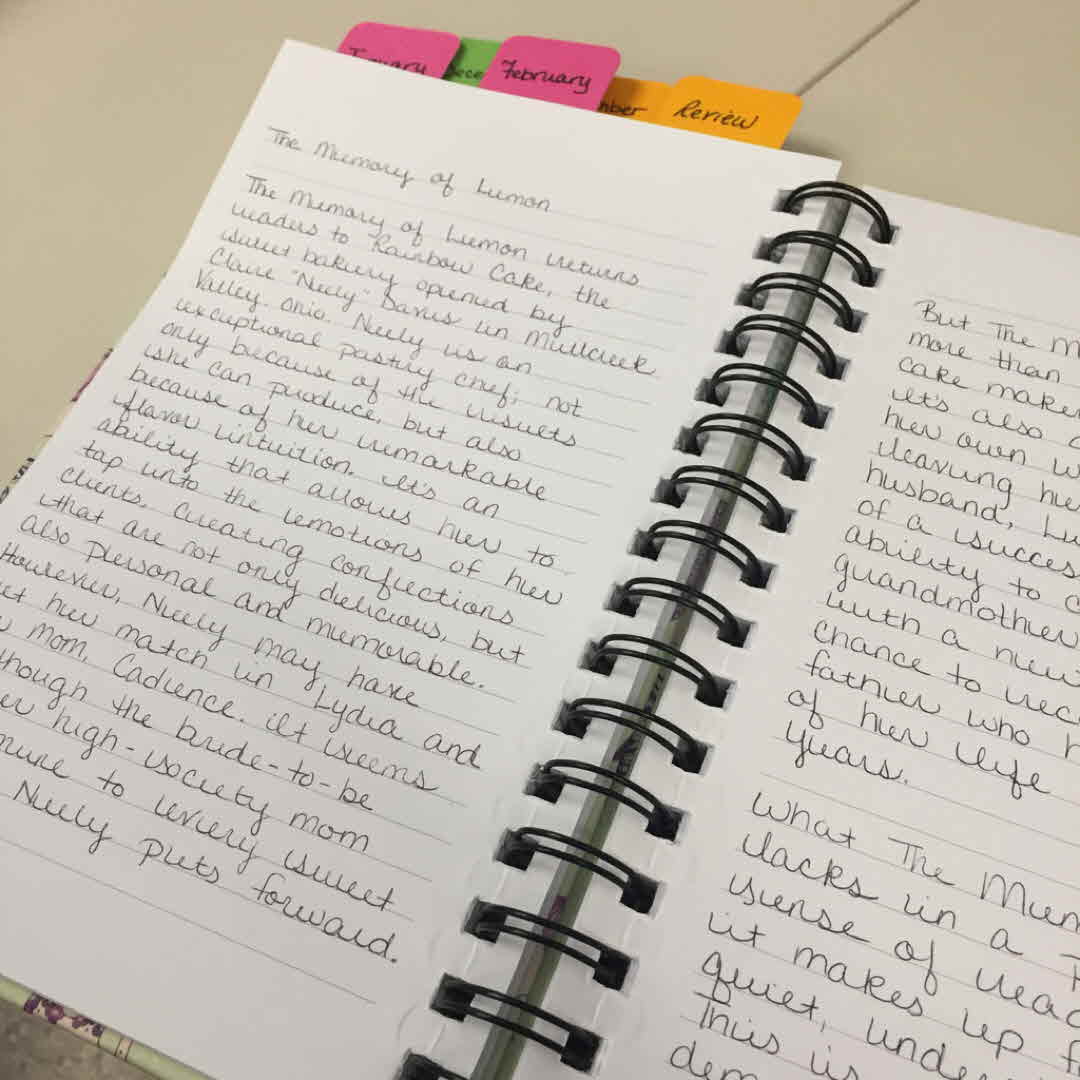 January
Dece
February
mber
Review
The Memory of Lemon
The Memory of Lemon returns
readers to Rainbow Cake, the
sweet bakery opened by
Claire "Neely" Davis in Millcreek
Valley, Ohio. Neely is an
exceptional pastry chef; not
only because of the visuels
she can produce, but also
because of her remarkable
flavor intuition. It's an
ability that allows her to
tap into the emotions of her
clients, creating confections
that are not only delicious, but
also personal and memorable.
However, Neely may have
et her match in Lydia and
mom, Cadience. It seems
though the bride-to-be
er high-society mom
mune to every sweet
Neely puts forward.
But The M
more than
cake maker
It's also a
her own w
leaving he
husband, Lu
of a succes
ability to c
grandmother
with a new
chance to rec
father who h
of her life
years.
What The Mem
lacks in a
sense of reac
it makes up f
quiet, unde
This is
dem